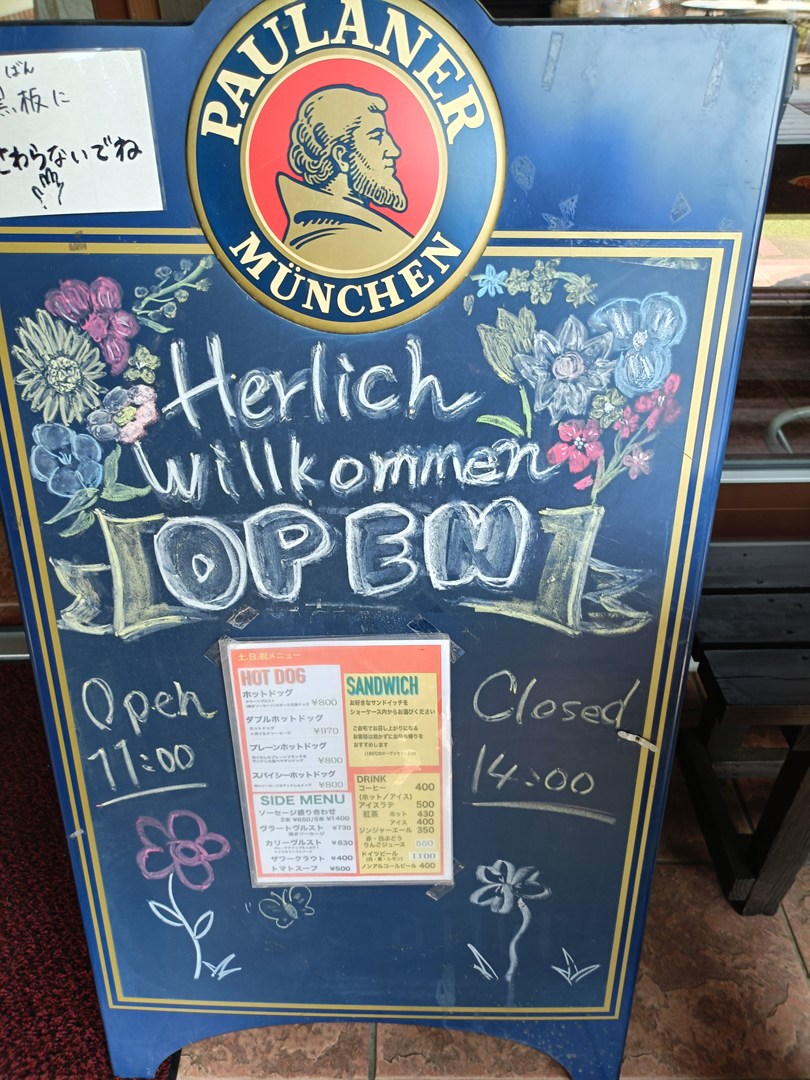 PAULANER
MÜNCHEN
ばん
黒板に
さわらないでね
Herlich
Willkommen
OPEN
Open
11:00
Closed
14:00
土,日,祝メニュー
HOT DOG
ホットドッグ
¥800
ダブルホットドッグ
¥970
プレーンホットドッグ
¥800
スパイシーホットドッグ
¥800
SIDE MENU
ソーセージ盛り合わせ
2本 ¥850/5本 ¥1400
ヴラートヴルスト ¥730
カリーヴルスト ¥830
ザワークラウト ¥400
トマトスープ ¥500
SANDWICH
お好きなサンドイッチを
ショーケース内からお選びください
ご自宅でお召し上がりになる
お客様は焼かずにお持ち帰りを
おすすめします
DRINK
コーヒー 400
(ホット/アイス)
アイスラテ 500
紅茶 ホット 430
アイス 400
ジンジャーエール 350
赤・白ぶどう
りんごジュース 550
ドイツビール 1100
ノンアルコールビール 400